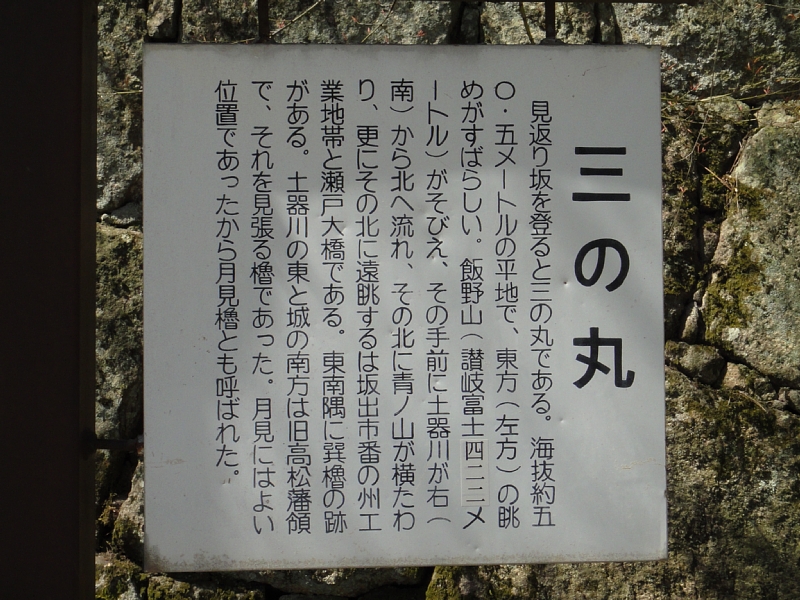 三の丸
見返り坂を登ると三の丸である。海抜約五
〇・五メートルの平地で、東方（左方）の眺
めがすばらしい。飯野山（讃岐富士四二二メ
ートル）がそびえ、その手前に土器川が右（
南）から北へ流れ、その北に青ノ山が横たわ
り、更にその北に遠眺するは坂出市番の州工
業地帯と瀬戸大橋である。東南隅に巽櫓の跡
がある。土器川の東と城の南方は旧高松藩領
で、それを見張る櫓であった。月見にはよい
位置であったから月見櫓とも呼ばれた。